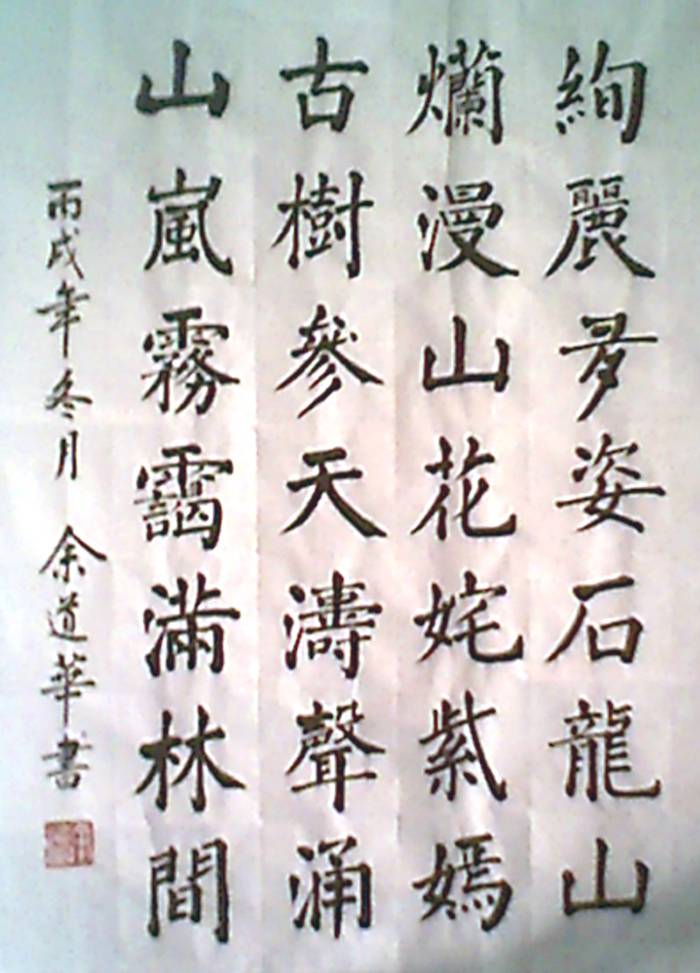 絢麗多姿石龍山
爛漫山花姹紫嫣
古樹參天濤聲涌
山嵐霧靄滿林間
丙戌年冬月 余道華書